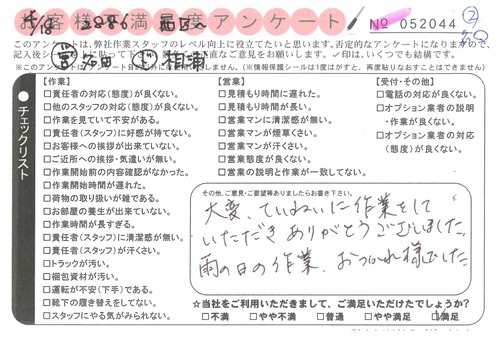 お客様満足度アンケート
No 052044 ②
4/18 2086 西区
このアンケートは、弊社作業スタッフのレベル向上に役立てたいと思います。否定的なアンケートになりますので、
※このアンケート (※情報保護シールは1度はがすと、再度貼りなおすことはできません)
チェックリスト
【作業】
□責任者の対応(態度)が良くない。
□他のスタッフの対応(態度)が良くない。
□作業を見ていて不安がある。
□責任者(スタッフ)に好感が持てない。
□お客様への挨拶が出来ていない。
□ご近所への挨拶・気遣いが無い。
□作業開始前の内容確認がなかった。
□作業開始時間が遅れた。
□荷物の取り扱いが雑である。
□お部屋の養生が出来ていない。
□作業時間が長すぎる。
□責任者(スタッフ)に清潔感が無い。
□責任者(スタッフ)が汗くさい。
□トラックが汚い。
□梱包資材が汚い。
□運転が不安(下手)である。
□靴下の履き替えをしてない。
□スタッフにやる気がみられない。
【営業】
□見積もり時間に遅れた。
□見積もり時間が長い。
□営業マンに清潔感が無い。
□営業マンが煙草くさい。
□営業マンが汗くさい。
□営業態度が良くない。
□営業の説明と作業が一致してない。
【受付・その他】
□電話の対応が良くない。
□オプション業者の説明
・作業が良くない。
□オプション業者の対応
(態度)が良くない。
その他、ご意見・ご要望等ありましたらお書き下さい。
大変、ていねいに作業をして
いただき ありがとうございました。
雨の日の作業、おつかれ様でした。
☆当社をご利用いただきまして、ご満足いただけたでしょうか?
□不満 □やや不満 □普通 □やや満足 □満足